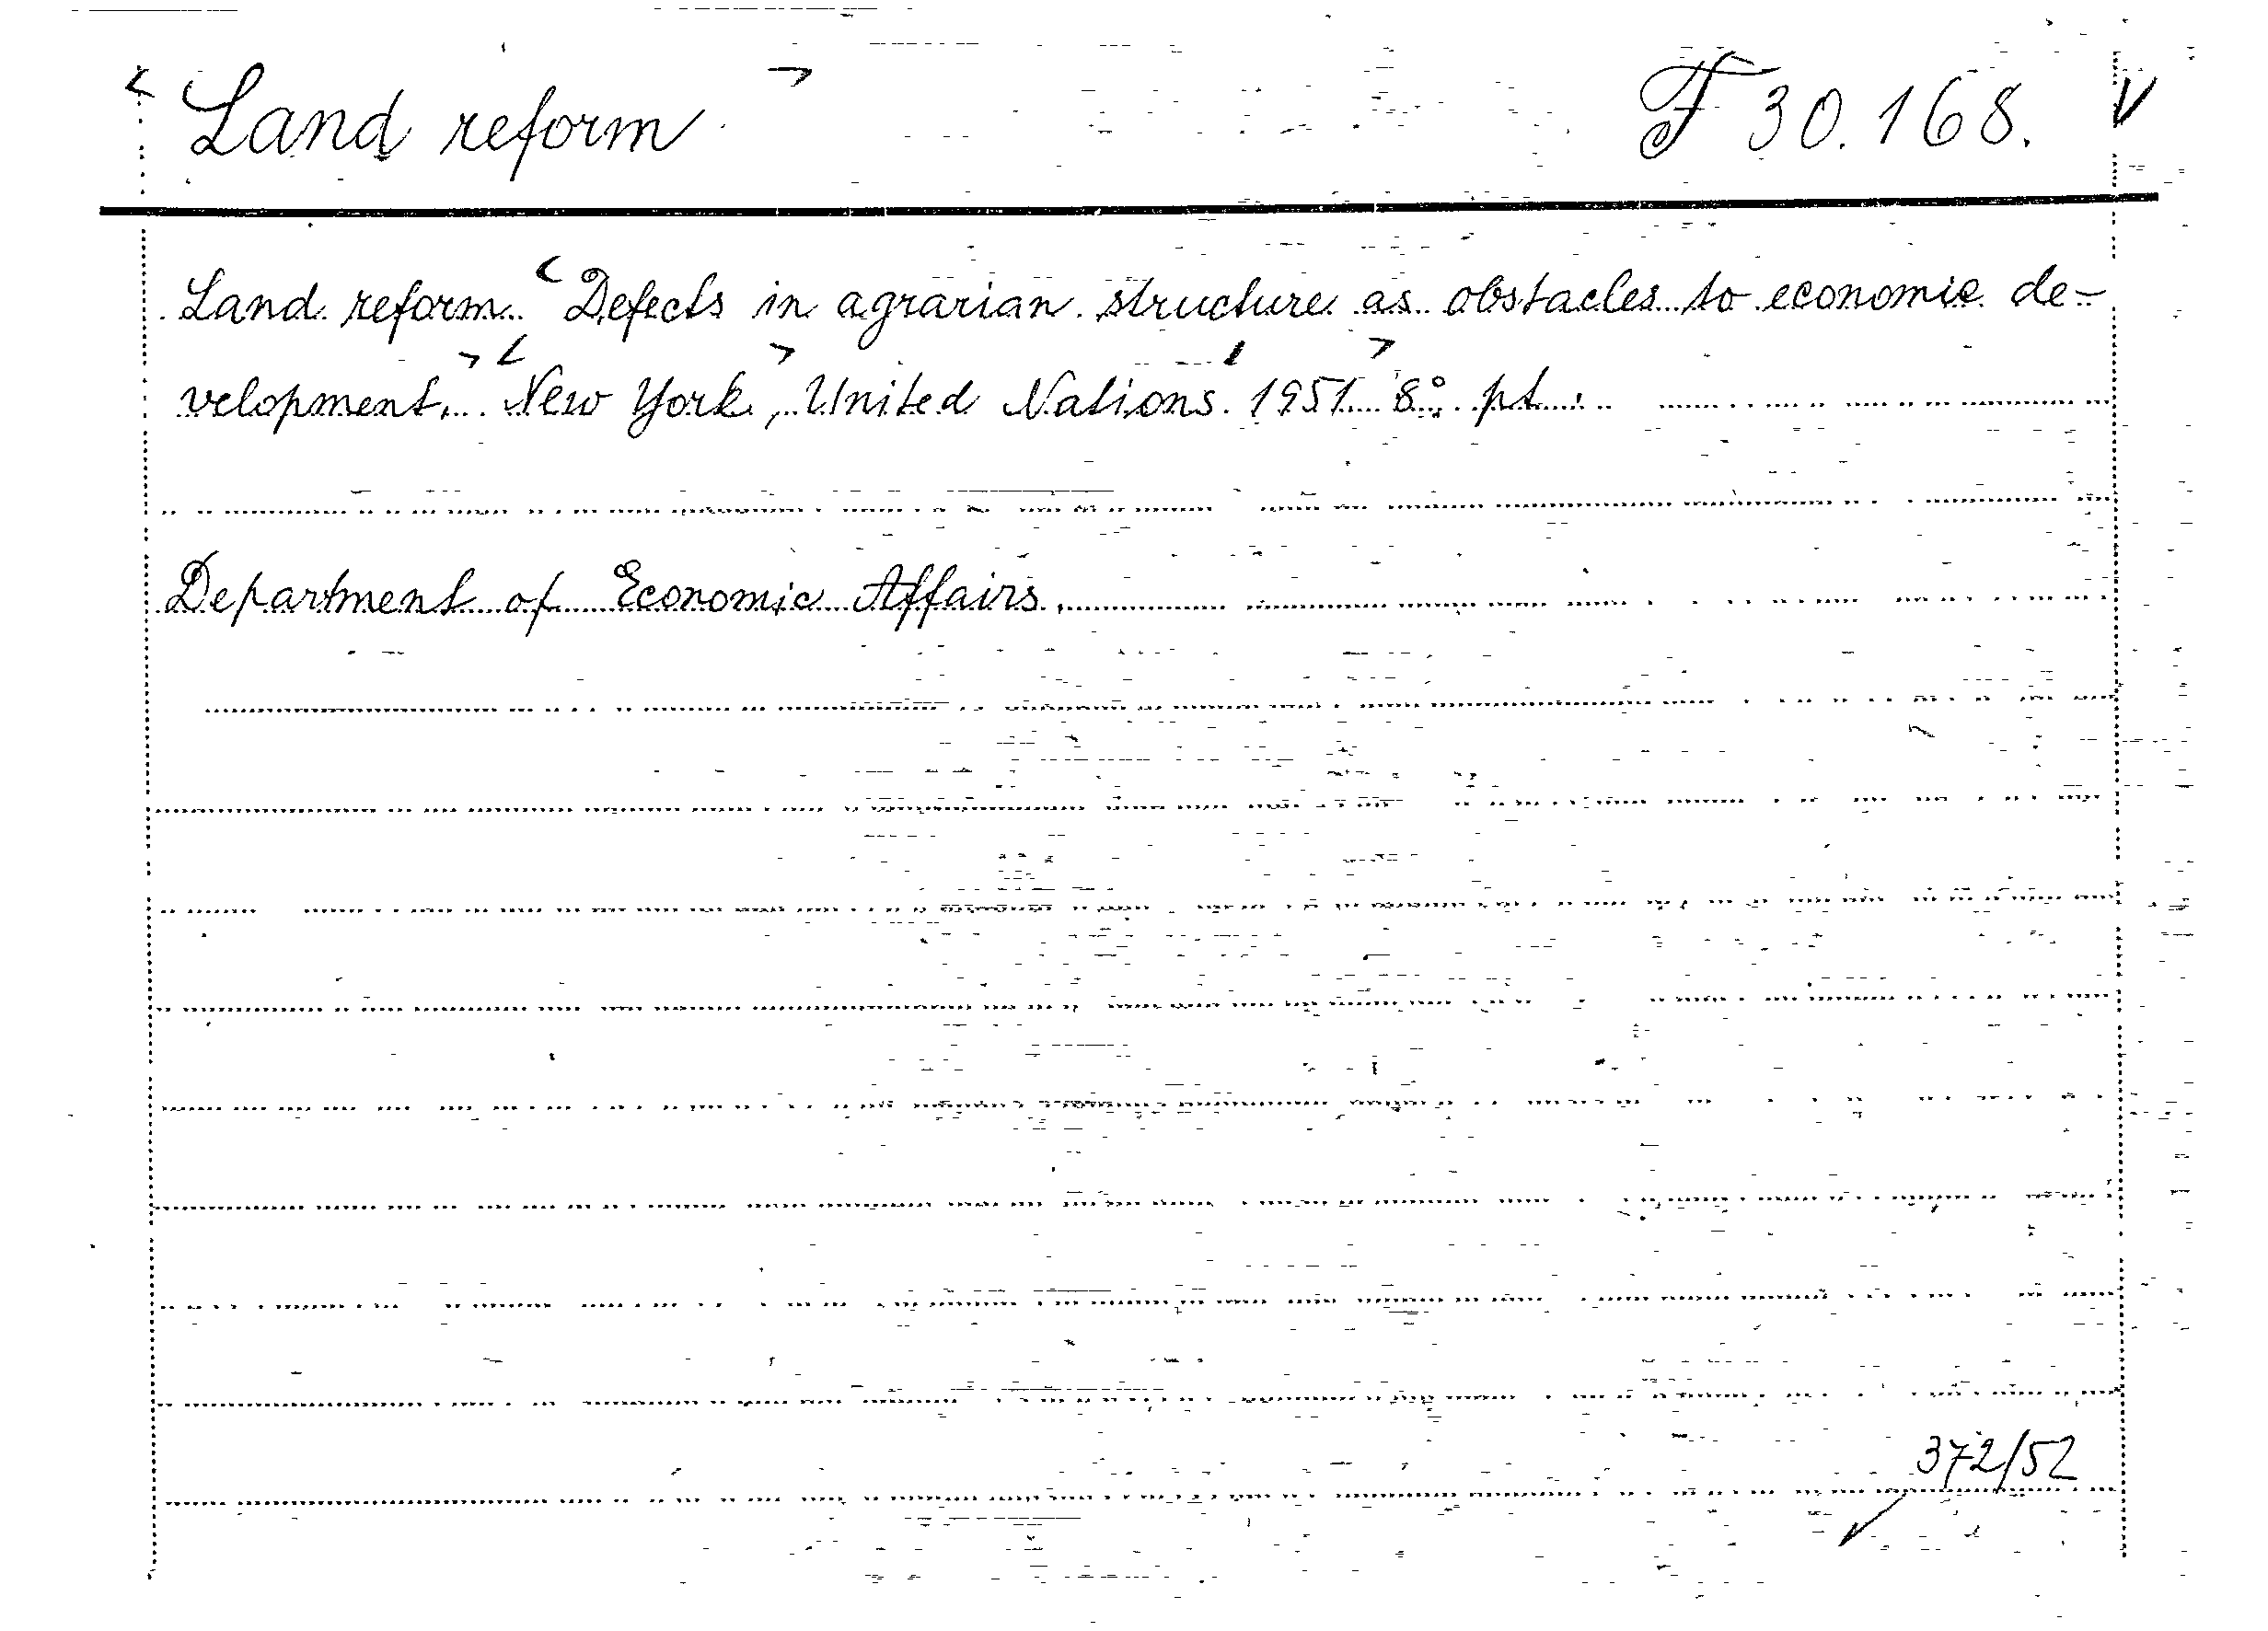 Land reform F 30.168.
Land reform. Defects in agrarian structure as obstacles to economic de-
velopment. New York, United Nations. 1951 8° pt.
Department of Economic Affairs.
372/52